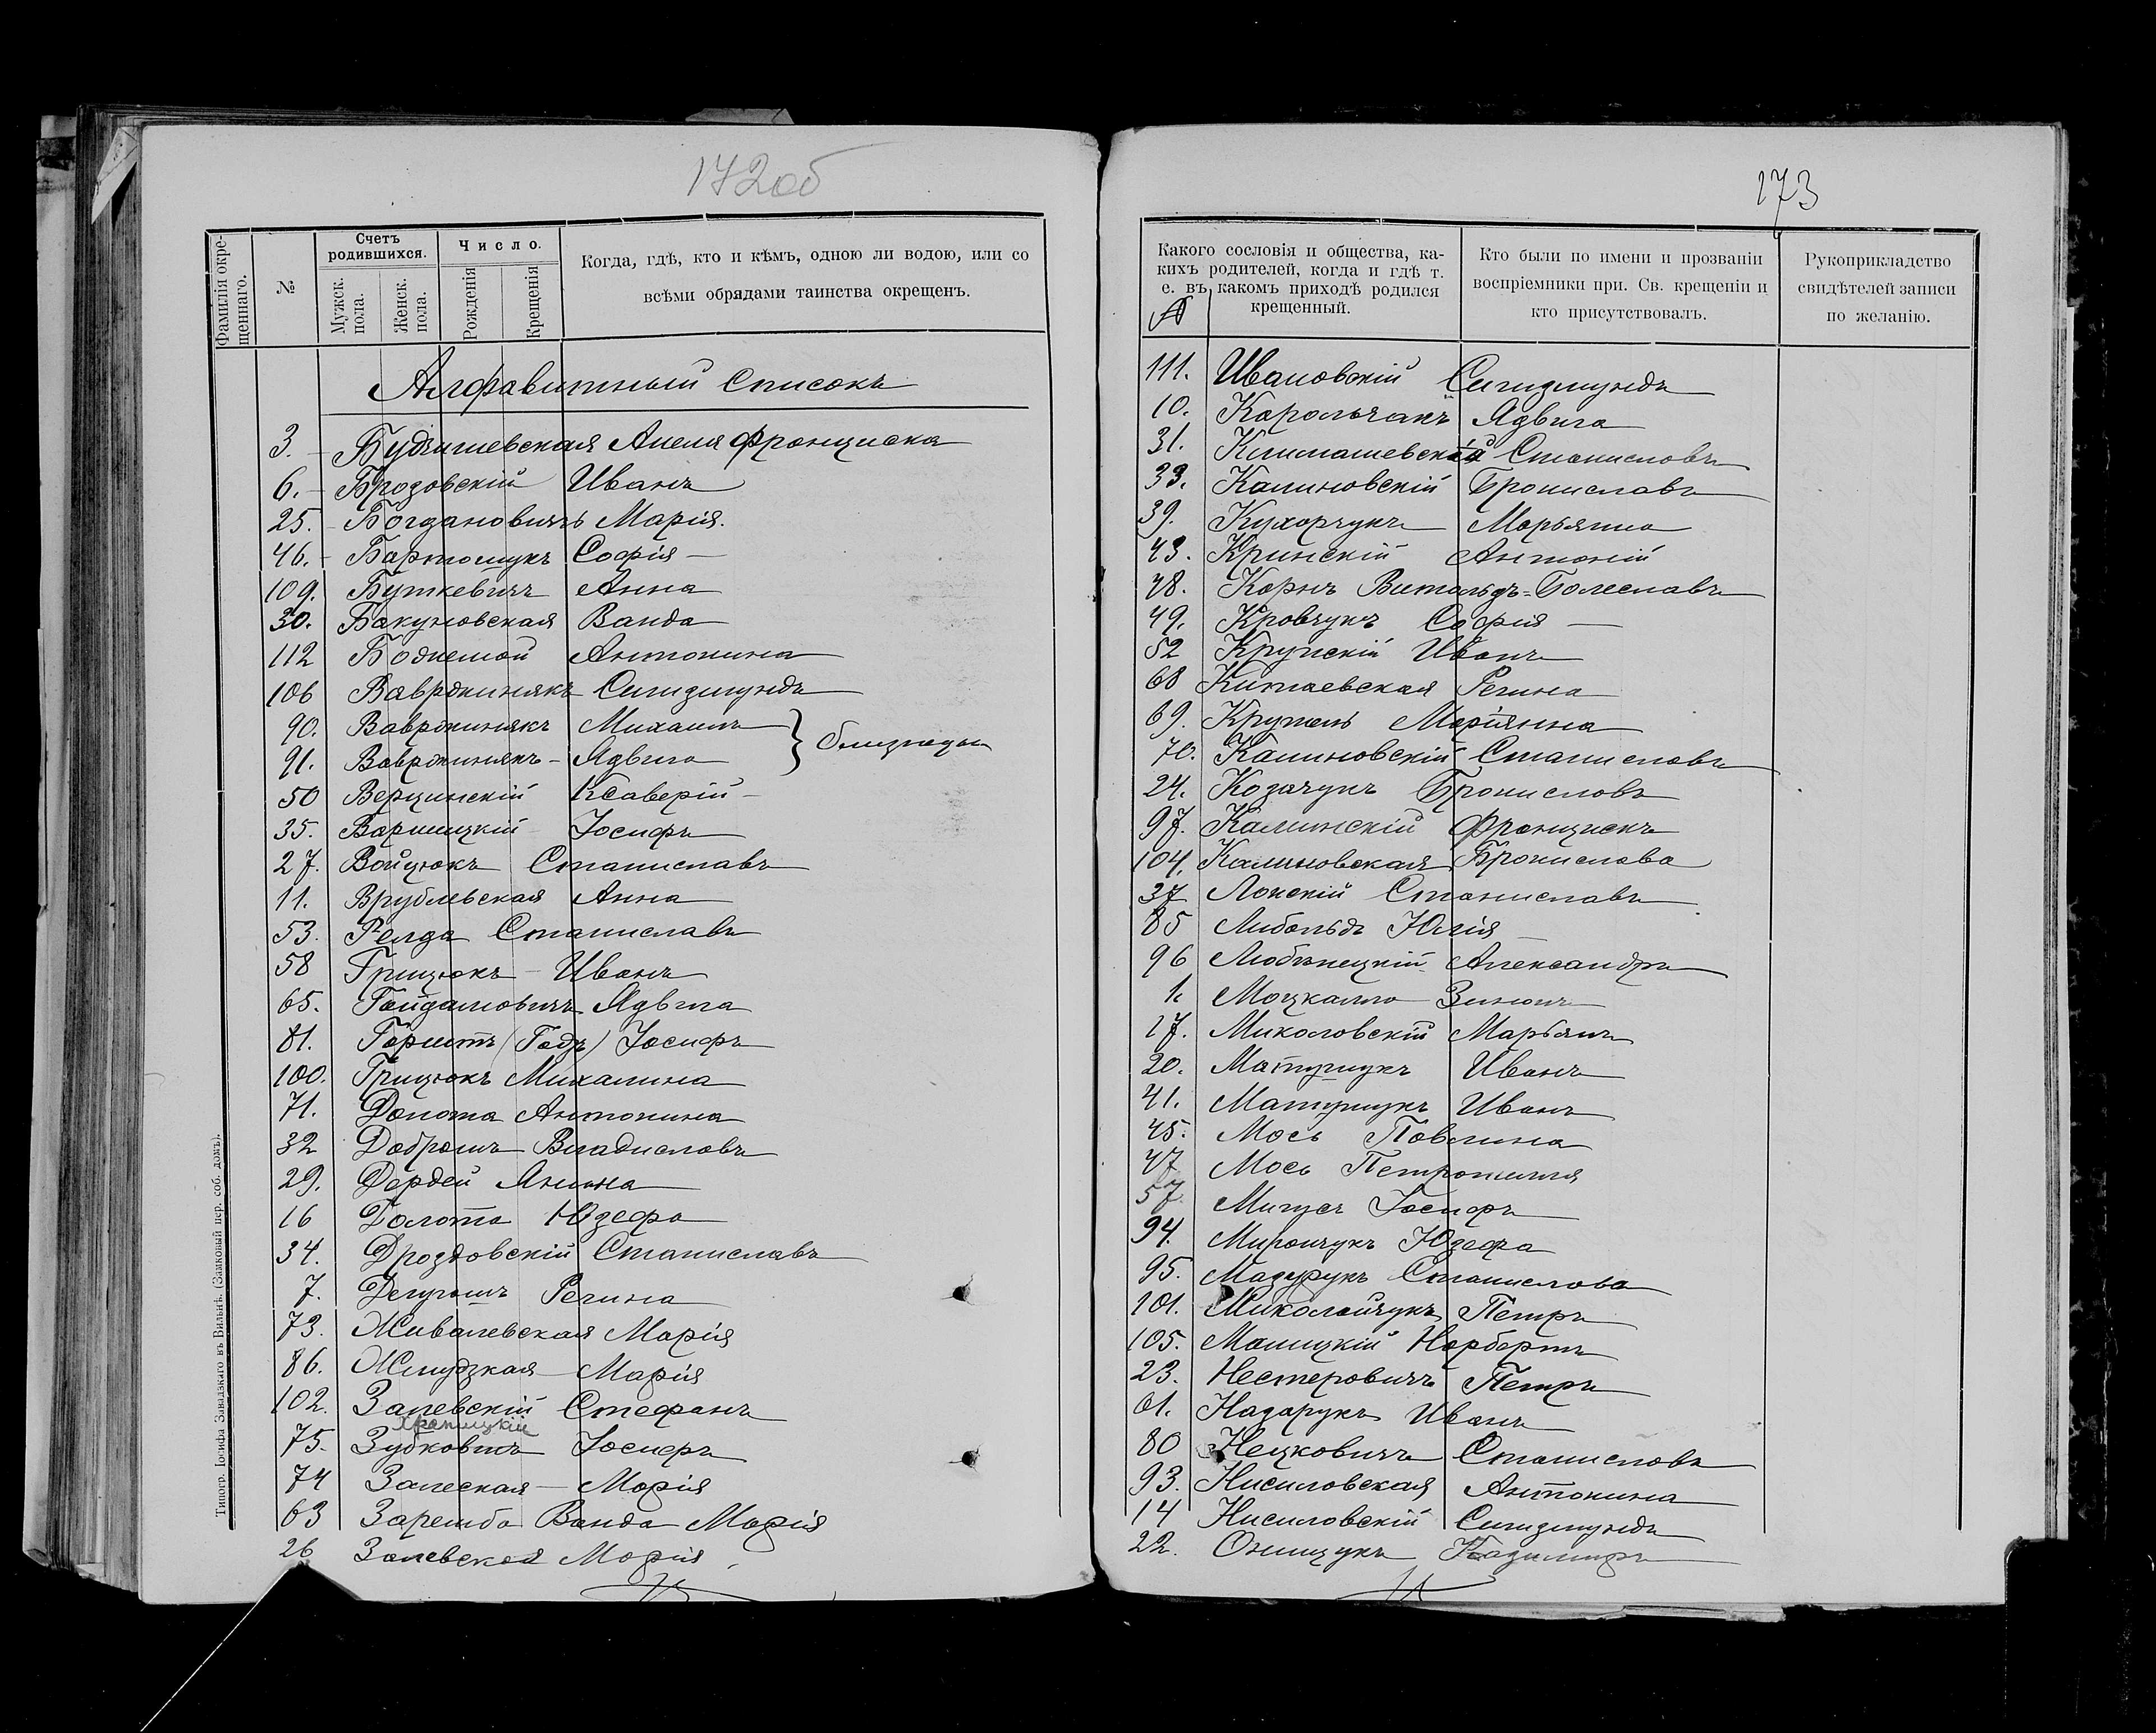 172об
Фамилія окре-
щеннаго.
№
Счетъ
родившихся.
Мужск.
пола.
Женск.
пола.
Число.
Рожденія
Крещенія
Когда, гдѣ, кто и кѣмъ, одною ли водою, или со
всѣми обрядами таинства окрещенъ.
Алфавитный списокъ
3. Будзишевская Анеля Франциска
6. Брозовскій Иванъ
25. Богдановичъ Марія.
46. Бартошукъ Софія
109. Буткевичъ Анна
30. Бакуновская Ванда
112 Антонина
106 Вавржинякъ Сигизмундъ
90. Вавржинякъ Михаилъ
91. Вавржинякъ Ядвига
близнецы
50 Верцинскій Ксаверій
35. Іосифъ
27. Войцюкъ Станиславъ
11. Врублевская Анна
53. Станиславъ
58 Грицюкъ Иванъ
65. Гайдамовичъ Ядвига
81. Іосифъ
100. Грицюкъ Михалина
71. Антонина
32 Владиславъ
29. Дердей Янина
16 Долота Юзефа
34. Дроздовскій Станиславъ
7. Регина
73. Живалевская Марія
86. Жмудзкая Марія
102. Залевскій Стефанъ
75. Зубковичъ Іосифъ
74 Залеская Марія
63 Заремба Ванда Марія
26 Залевская Марія
Типогр. Іосифа Завадзкаго въ Вильнѣ. (Замковый пер. соб. домъ).
173
Какого сословія и общества, ка-
кихъ родителей, когда и гдѣ т.
е. въ какомъ приходѣ родился
крещенный.
Кто были по имени и прозваніи
воспріемники при. Св. крещеніи и
кто присутствовалъ.
Рукоприкладство
свидѣтелей записи
по желанію.
111. Ивановскій Сигизмундъ
10. Карольчакъ Ядвига
31. Климашевскій Станиславъ
33. Калиновскій Брониславъ
39. Кухарчукъ Марьянна
43. Кринскій Антоній
48. Корнъ Витольдъ-Болеславъ
49. Кравчукъ Софія
52 Крупскій Иванъ
68 Китаевская Регина
69. Маріянна
70. Калиновскій Станиславъ
24. Козачукъ Брониславъ
97. Калинскій Францискъ
104. Калиновская Бронислава
37 Лонскій Станиславъ
85 Либольдъ Юлія
96 Александръ
1. Моцкалло
17. Миколовскій Марьянъ
20. Матушукъ Иванъ
41. Матушукъ Иванъ
45. Мось Павлина
47 Мось Петронилля
57. Іосифъ
94. Мирончукъ Юзефа
95. Мазурукъ Станислава
101. Миколайчукъ Петръ
105. Малицкій Норбертъ
23. Нестеровичъ Петръ
61. Назарукъ Иванъ
80 Нецковичъ Станиславъ
93. Нисиловская Антонина
14 Нисиловскій Сигизмундъ
22. Онищукъ Казимиръ